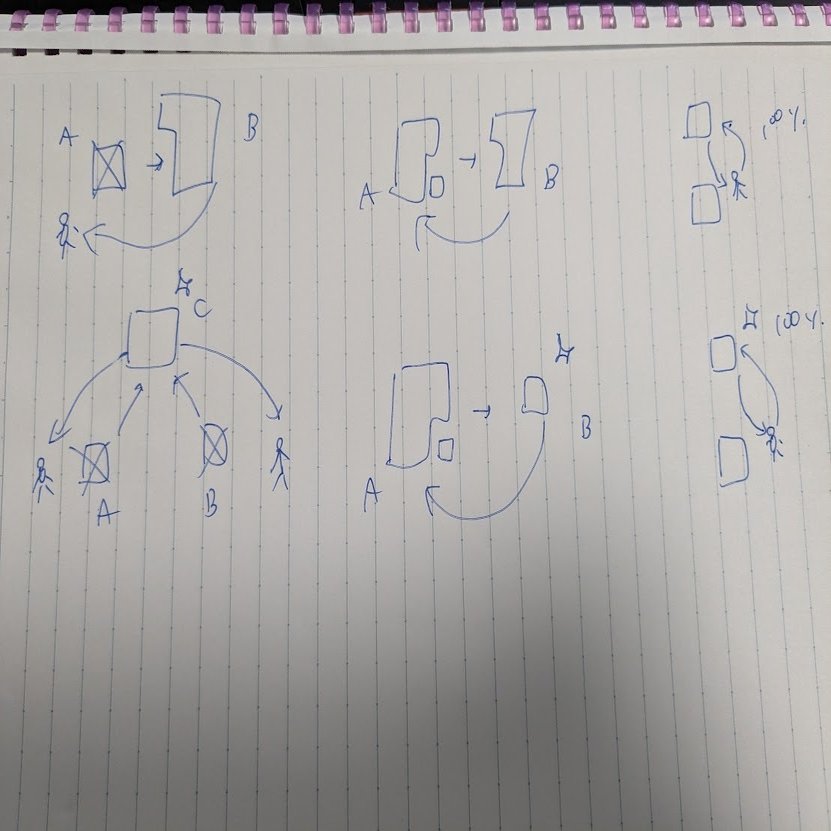 A
B
A
B
100%
C
A
B
A
B
100%